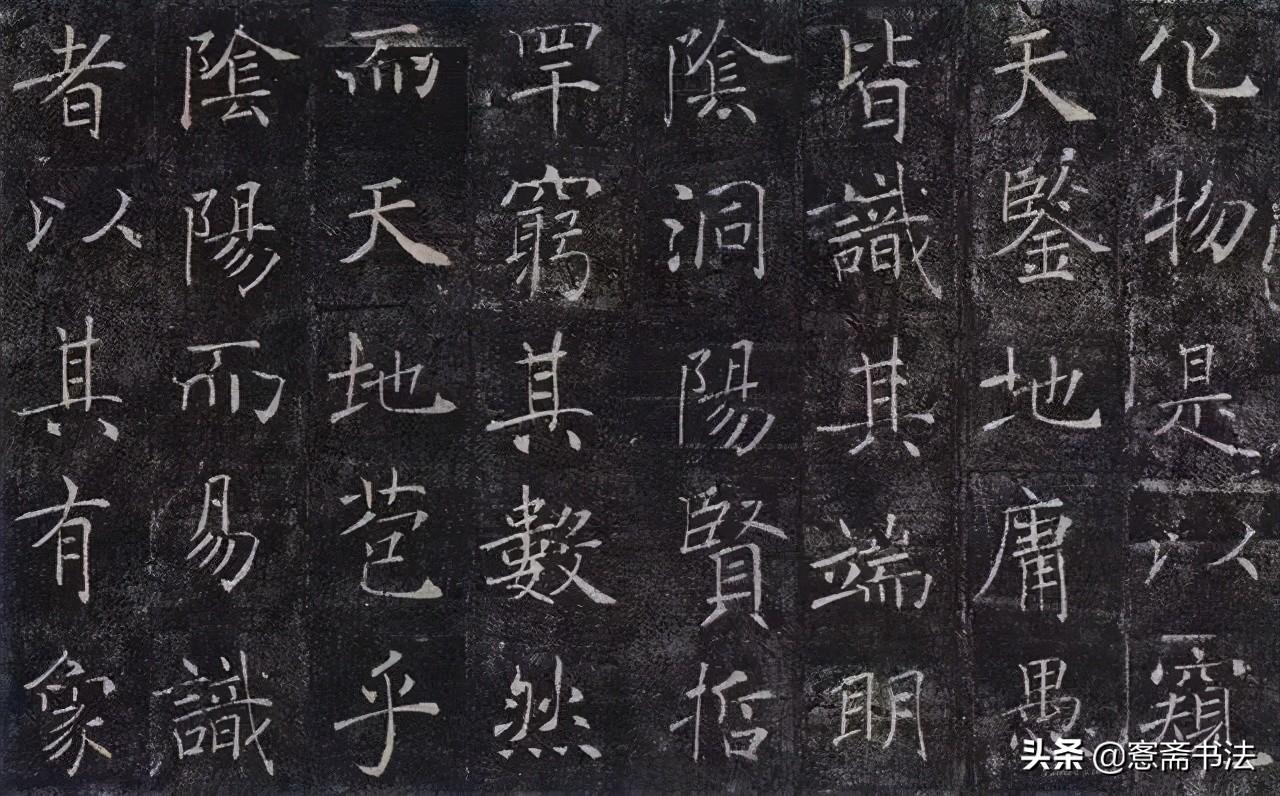 化物是以窺
天鑒地庸愚
皆識其端明
陰洞陽賢哲
罕窮其數然
而天地苞乎
陰陽而易識
者以其有象
头条 @愙斋书法